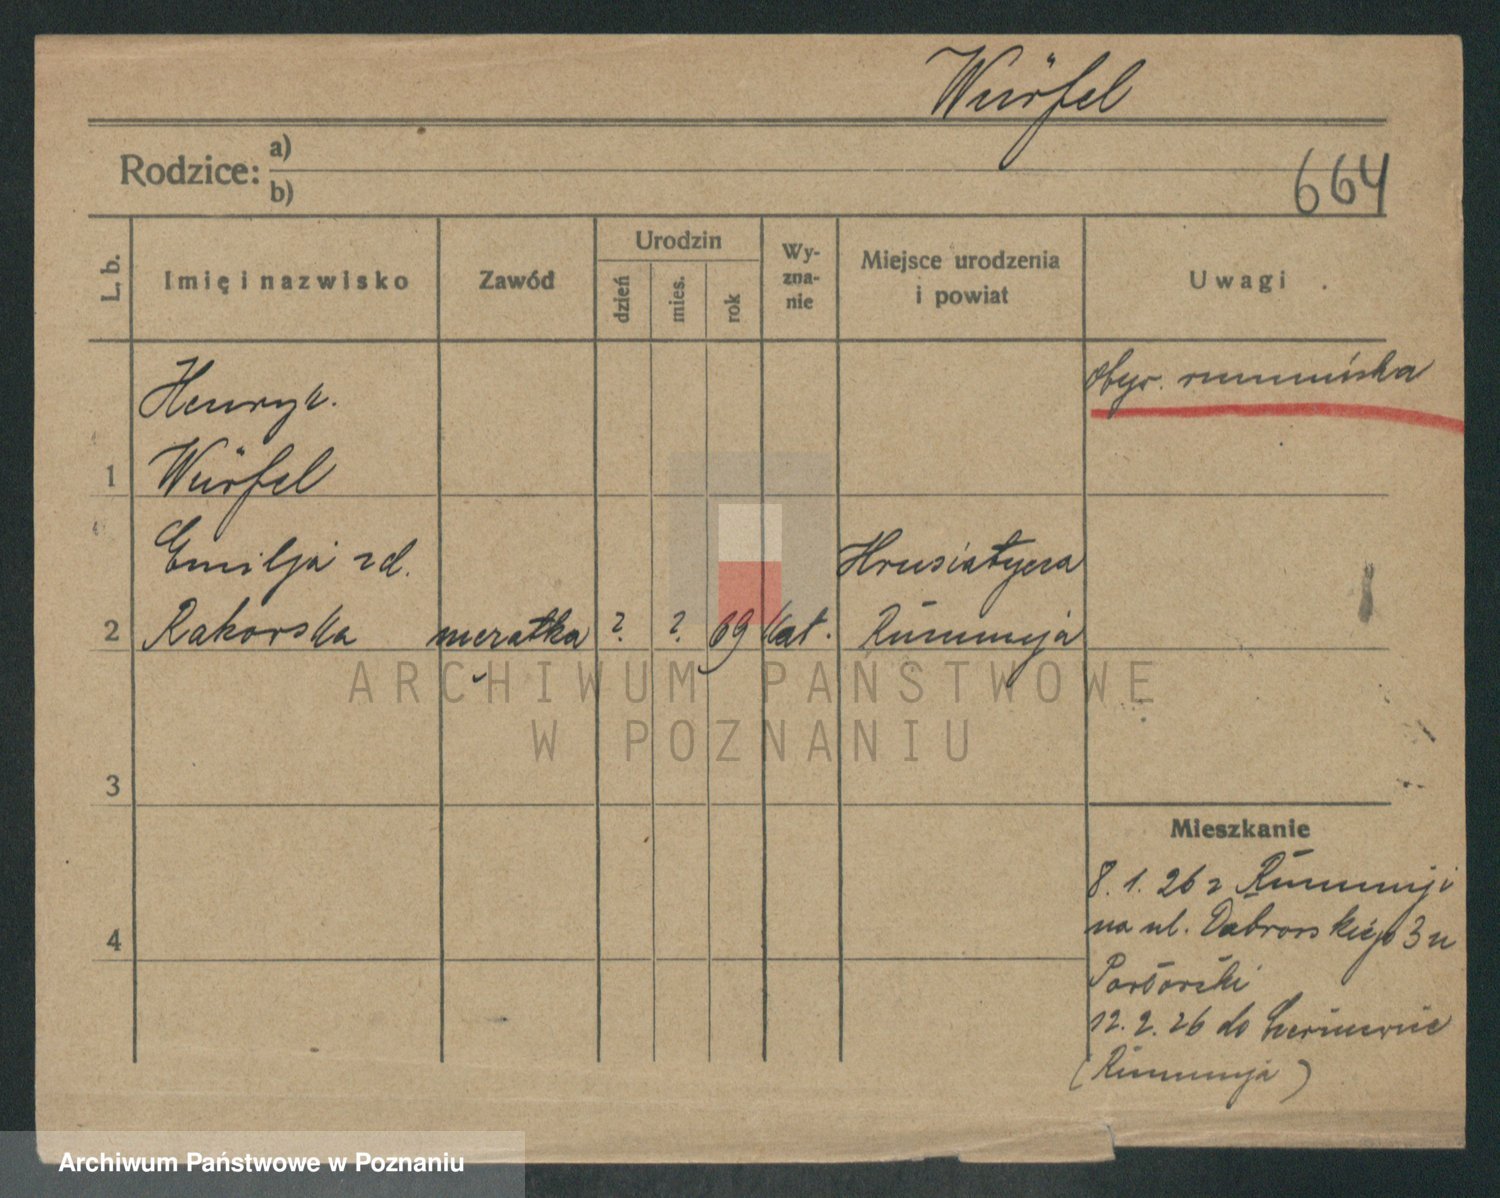 Würfel
Rodzice: a)
b)
664
L. b.
Imię i nazwisko
Zawód
Urodzin
dzień
mies.
rok
Wy-
zna-
nie
Miejsce urodzenia
i powiat
Uwagi
Henryk.
obyw. rumuńska
1
Würfel
Emilja zd.
Hrusiatyna
2
Rakowska mężatka ? ? 69 kat. Rumunja
ARCHIWUM PAŃSTWOWE
W POZNANIU
3
Mieszkanie
8. 1. 26 z Rumunji
na ul. Dąbrowskiego 3 u
4
12. 2. 26 do
(Rumunja)
Archiwum Państwowe w Poznaniu